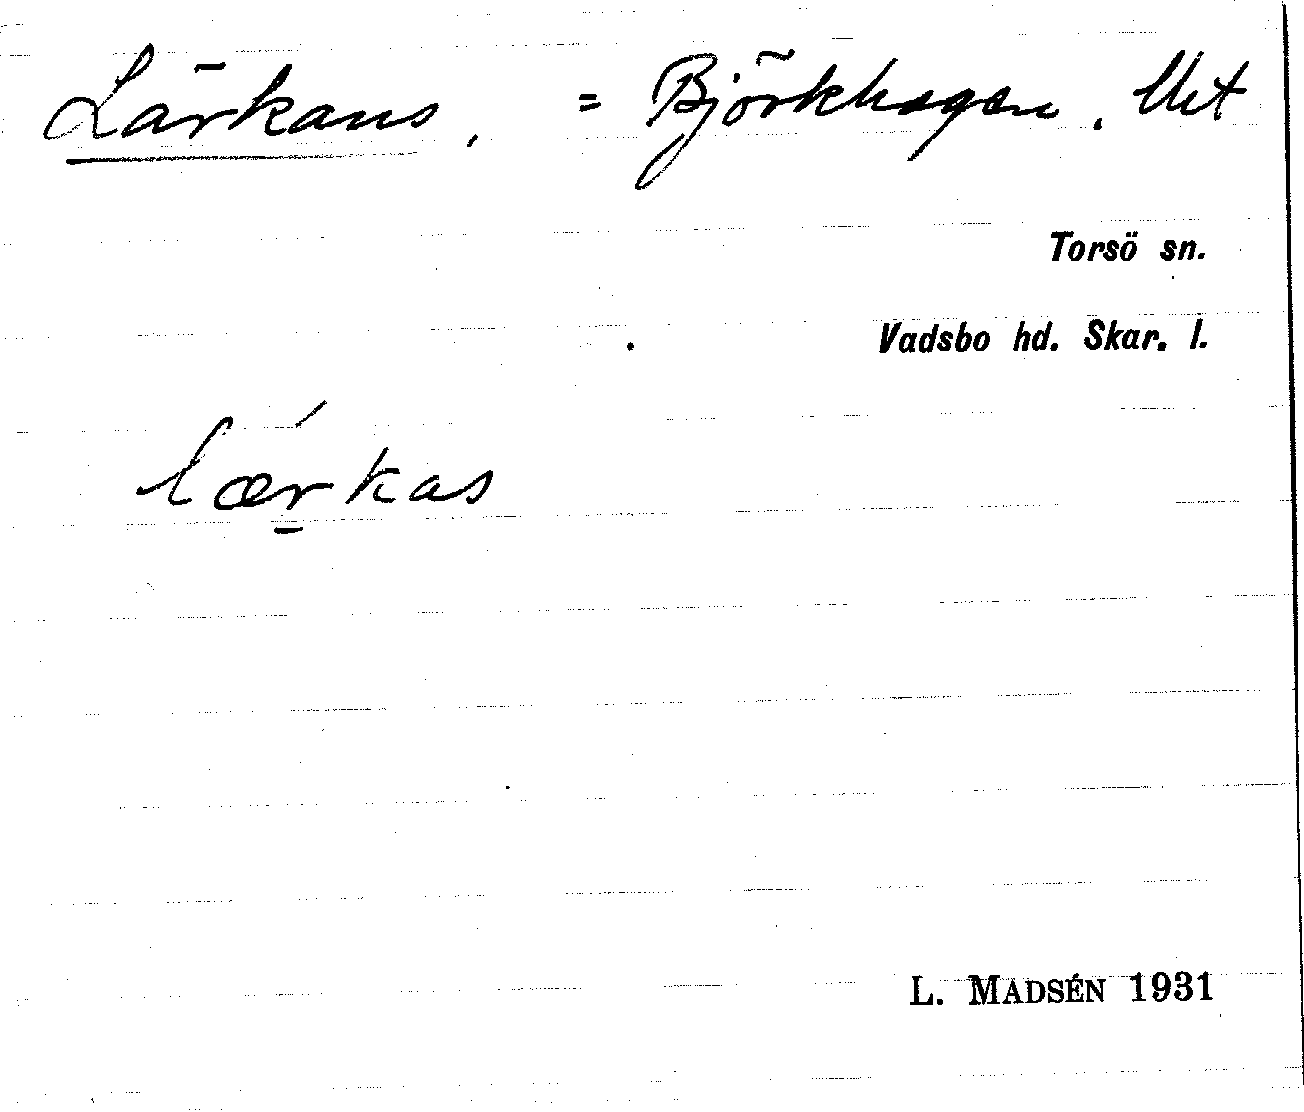 Lärkans, = Björkhagen, Uet
Torsö sn.
Vadsbo hd. Skar. l.
lǽr̲kas
L. MADSÉN 1931